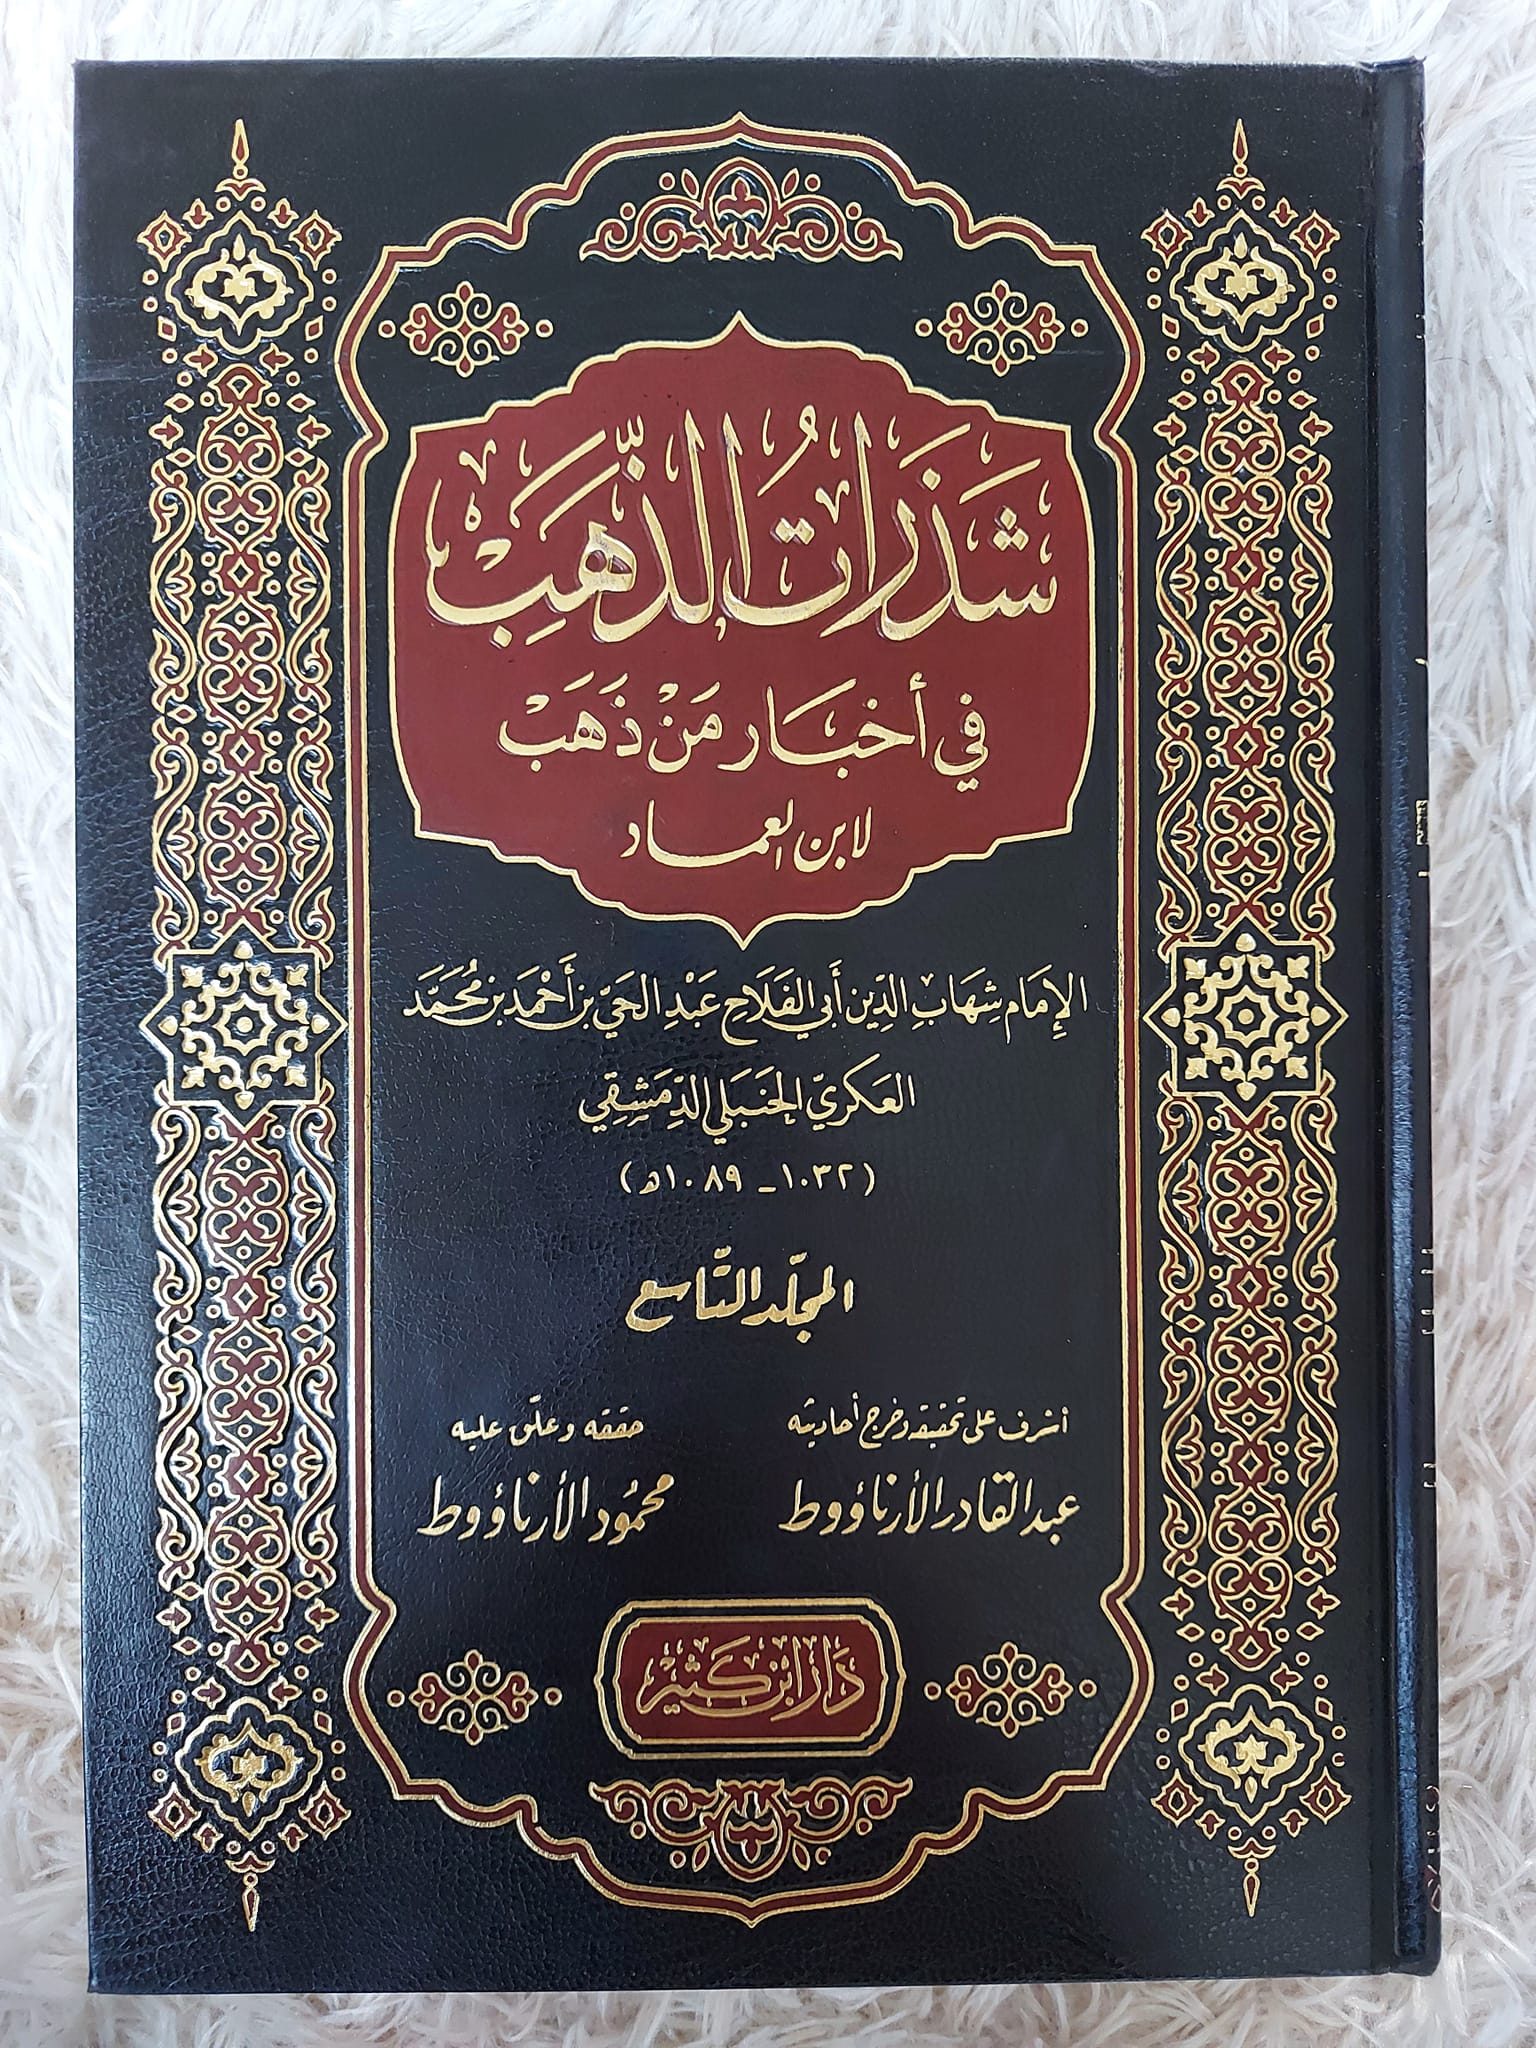 شَذَرَاتُ الذَّهَبِ
في أخبَار مَنْ ذَهَبْ
لابن العماد
الإِمَام شِهَابِ الدِّين أَبي الفَلَاحِ عَبْدِ الحَيّ بن أَحْمَد بن مُحَمَّد
العَكري الحَنبَلي الدِّمَشِقِي
(١٠٣٢ - ١٠٨٩ هـ)
المجلّد التّاسع
أشرف على تحقيقه وخرج أحاديثه
عبد القادر الأرناؤوط
حققه وعلّق عليه
محمُود الأرناؤوط
دَار ابْن كَثير